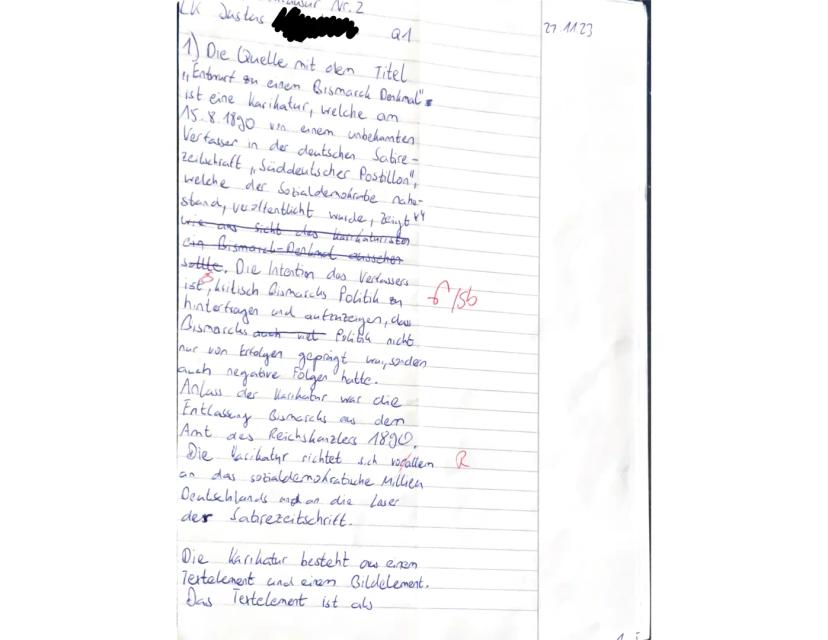 LK Justus Klausur Nr. 2
27.11.23
Q1
1) Die Quelle mit dem Titel
„Entwurf zu einem Bismarck Denkmal"
ist eine Karikatur, welche am
15.8.1890 von einem unbekannten
Verfasser in der deutschen Satire-
zeitschraft „Süddeutscher Postillon",
welche der Sozialdemokratie nahe-
stand, veröffentlicht wurde, zeigt
wie aus Sicht des Karikaturisten
ein Bismarck-Denkmal aussehen
sollte. Die Intention des Verfassers
ist, kritisch Bismarcks Politik zu
hinterfragen und aufzuzeigen, das
Bismarcks auch viel Politik nicht
nur von Erfolgen geprägt war, sonden
auch negative Folgen hatte.
Anlass der Karikatur war die
Entlassung Bismarcks aus dem
Amt des Reichskanzlers 1890.
Die Karikatur richtet sich vorallem R
an das sozialdemokratische Millieu
Deutschlands und an die Leser
der Satirezeitschrift.
Die Karikatur besteht aus einem
Textelement und einem Bildelement.
Das Textelement ist als